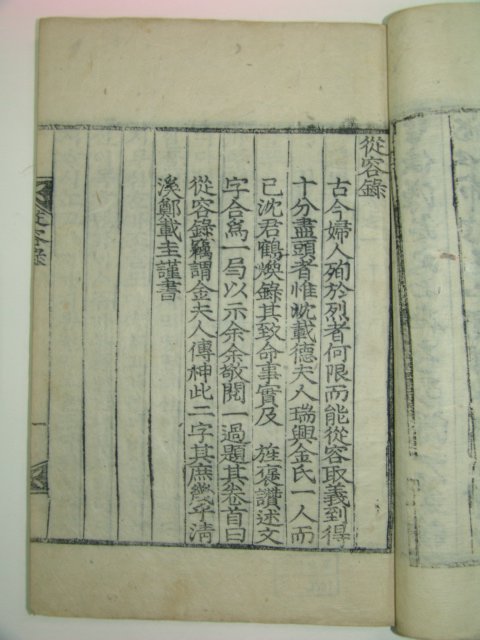 從容錄
古今婦人殉於烈者何限而能從容取義到得
十分盡頭者惟沈載德夫人瑞興金氏一人而
已沈君鶴煥錄其致命事實及 旌褒讚述文
字合爲一局以示余余敬閱一過題其卷首曰
從容錄竊謂金夫人傳神此二字其庶幾乎淸
溪鄭載圭謹書
從容錄
一